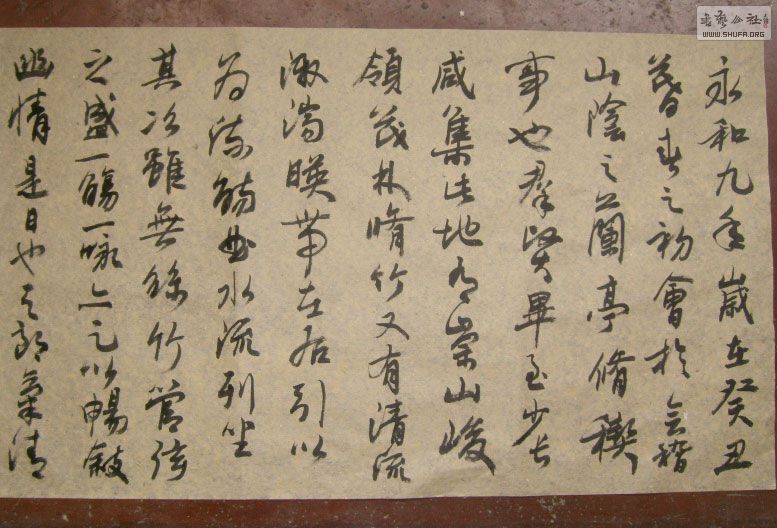 永和九年歲在癸丑
暮春之初會於會稽
山陰之蘭亭脩稧
事也羣賢畢至少長
咸集此地有崇山峻
領茂林脩竹又有清流
激湍暎帶左右引以
為流觴曲水流列坐
其次雖無絲竹管弦
之盛一觴一詠亦足以暢敘
幽情是日也天朗氣清
書藝公社
WWW.SHUFA.ORG